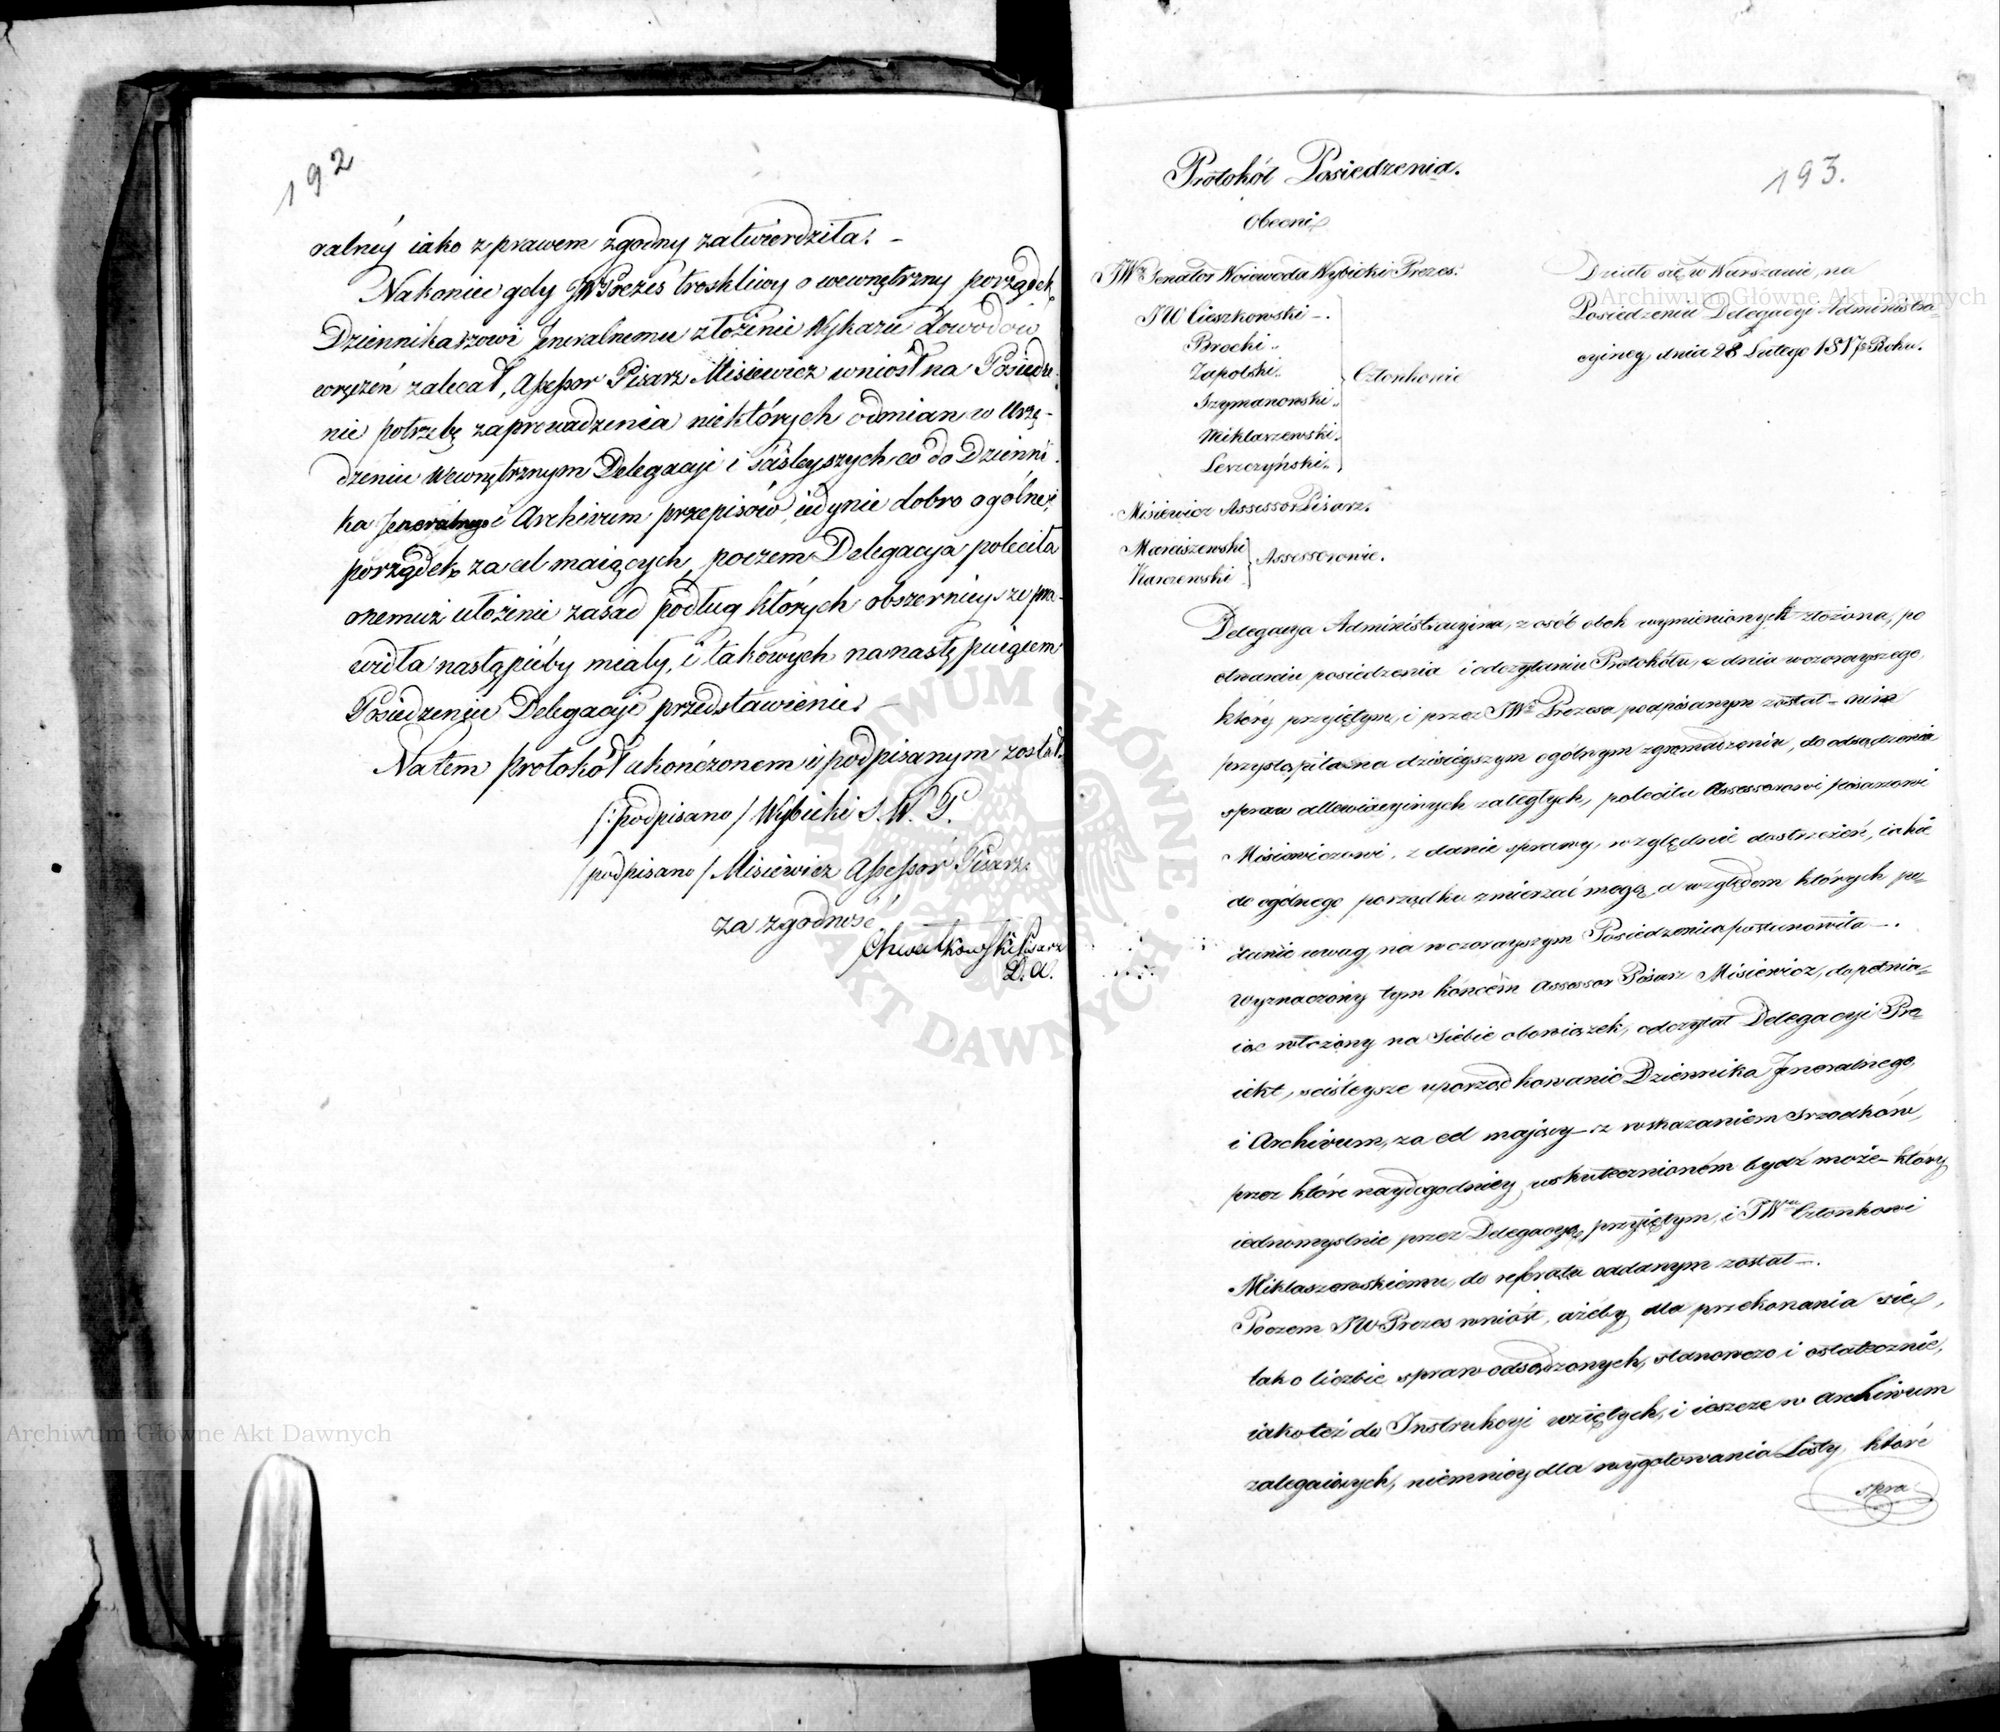 192
ralney iako z prawem zgodny zatwierdziła. –
Nakoniec gdy JW Prezes troskliwy o wewnętrzny porządek
Dziennikarzowi Jeneralnemu złożenie Wykazu dowodów
doręczeń zalecał, Assessor Pisarz Misiewicz wniósł na Posiedze-
nie potrzebę zaprowadzenia niektórych odmian w Urzą-
dzeniu wewnętrznym Delegacyi i ściśleyszych co do Dzienni-
ka Jeneralnego i Archivum przepisów, iedynie dobro ogólne i
porządek za cel maiących, poczem Delegacya poleciła
onemuż ułożenie zasad podług których obszernieysze pra-
widła nastąpićby miały, i takowych na następuiącem
Posiedzeniu Delegacyi przedstawienie. –
Na tem protokół ukończonem i podpisanym został.
/:podpisano/ Wybicki S. W. P.
/podpisano/ Misiewicz Assessor Pisarz.
za zgodność
Chwałkowski Pisarz
D. A.
193.
Protokół Posiedzenia.
Obecni
JW. Senator Woiewoda Wybicki Prezes.
JW Cieszkowski –.
Brocki..
Zapolski..
Szymanowski..
Miklaszewski..
Leszczyński..
Członkowie
Misiewicz Assessor Pisarz.
Marciszewski
Karczewski
Assessorowie.
Działo się w Warszawie, na
Posiedzeniu Delegacyi Administra-
cyiney dnia 28 Lutego Roku.
Delegacya Administracyina, z osób obok wymienionych złożona, po
otwarciu posiedzenia i odczytaniu Protokółu, z dnia wczorayszego,
który przyiętym, i przez JW. Prezesa podpisanym został – nim
przystąpiła na dzisieyszym ogólnym zgromadzeniu, do odsądzenia
spraw allewiacyinych zaległych, poleciła Assessorowi pisarzowi
Misiewiczowi, zdanie sprawy, względnie dostrzeżeń, iakie
do ogólnego porządku zmierzać mogą, a względem których po-
danie uwag, na wczorayszym Posiedzeniu postanowiła –.
Wyznaczony tym końcem Assessor Pisarz Misiewicz, dopełnia-
iąc włożony na siebie obowiązek, odczytał Delegacyi Pro-
iekt, ściśleysze uporządkowanie Dziennika Jeneralnego,
i Archivum, za cel mający – z wskazaniem srzodków,
przez które naydogodniey uskutecznionem bydź może – który
iednomyślnie przez Delegacyą przyiętym, i JWmu Członkowi
Miklaszewskiemu, do referatu oddanym został –.
Poczem JW Prezes wniósł, ażeby dla przekonania się,
tak o liczbie spraw odsądzonych, stanowczo i ostatecznie,
iako też do Instrukcyi wziętych, i ieszcze w Archivum
zalegaiących, niemniey dla wygotowania Listy, które
spra